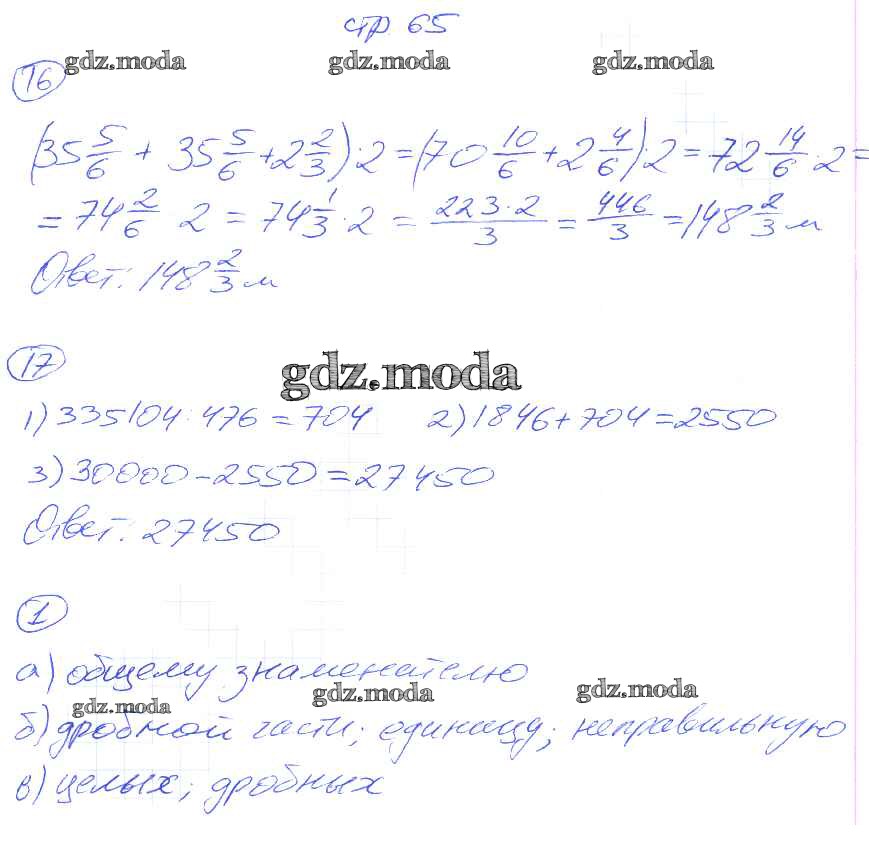 стр 65
gdz.moda gdz.moda gdz.moda
16
(35 5/6 + 35 5/6 + 2 2/3) · 2 = (70 10/6 + 2 4/6) · 2 = 72 14/6 · 2 =
= 74 2/6 2 = 74 1/3 · 2 = 223·2/3 = 446/3 = 148 2/3 м
Ответ: 148 2/3 м
17
gdz.moda
1) 335104 : 476 = 704 2) 1846 + 704 = 2550
3) 30000 - 2550 = 27450
Ответ: 27450
1
а) общему знаменателю
gdz.moda gdz.moda gdz.moda
б) дробной части; единицу; неправильную
в) целых; дробных